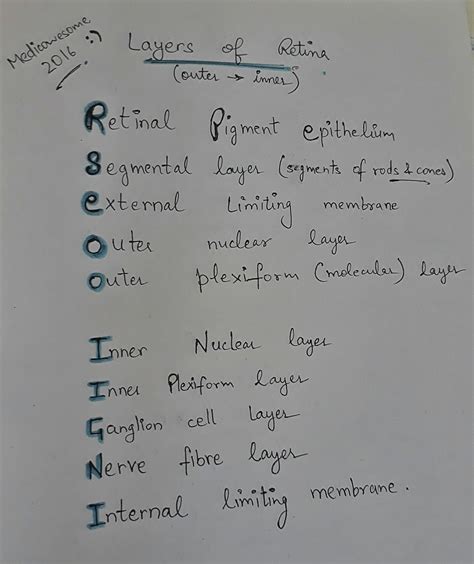 Medicowesome
2016 :)
Layers of Retina
(outer → inner)
Retinal Pigment epithelium
Segmental layer (segments of rods & cones)
External Limiting membrane
Outer nuclear layer
Outer plexiform (molecular) layer
Inner Nuclear layer
Inner Plexiform layer
Ganglion cell layer
Nerve fibre layer
Internal limiting membrane.